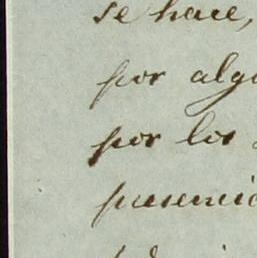 se hace,
por alg
por los
presenci